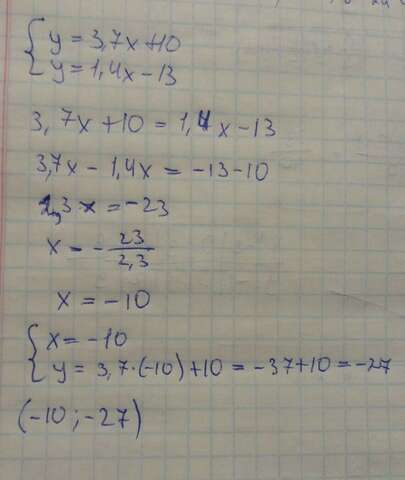 { y = 3,7x+10
y = 1,4x-13
3,7x+10 = 1,4x-13
3,7x - 1,4x = -13-10
2,3x = -23
x = - 23/2,3
x = -10
{ x = -10
y = 3,7·(-10)+10 = -37+10 = -27
(-10; -27)